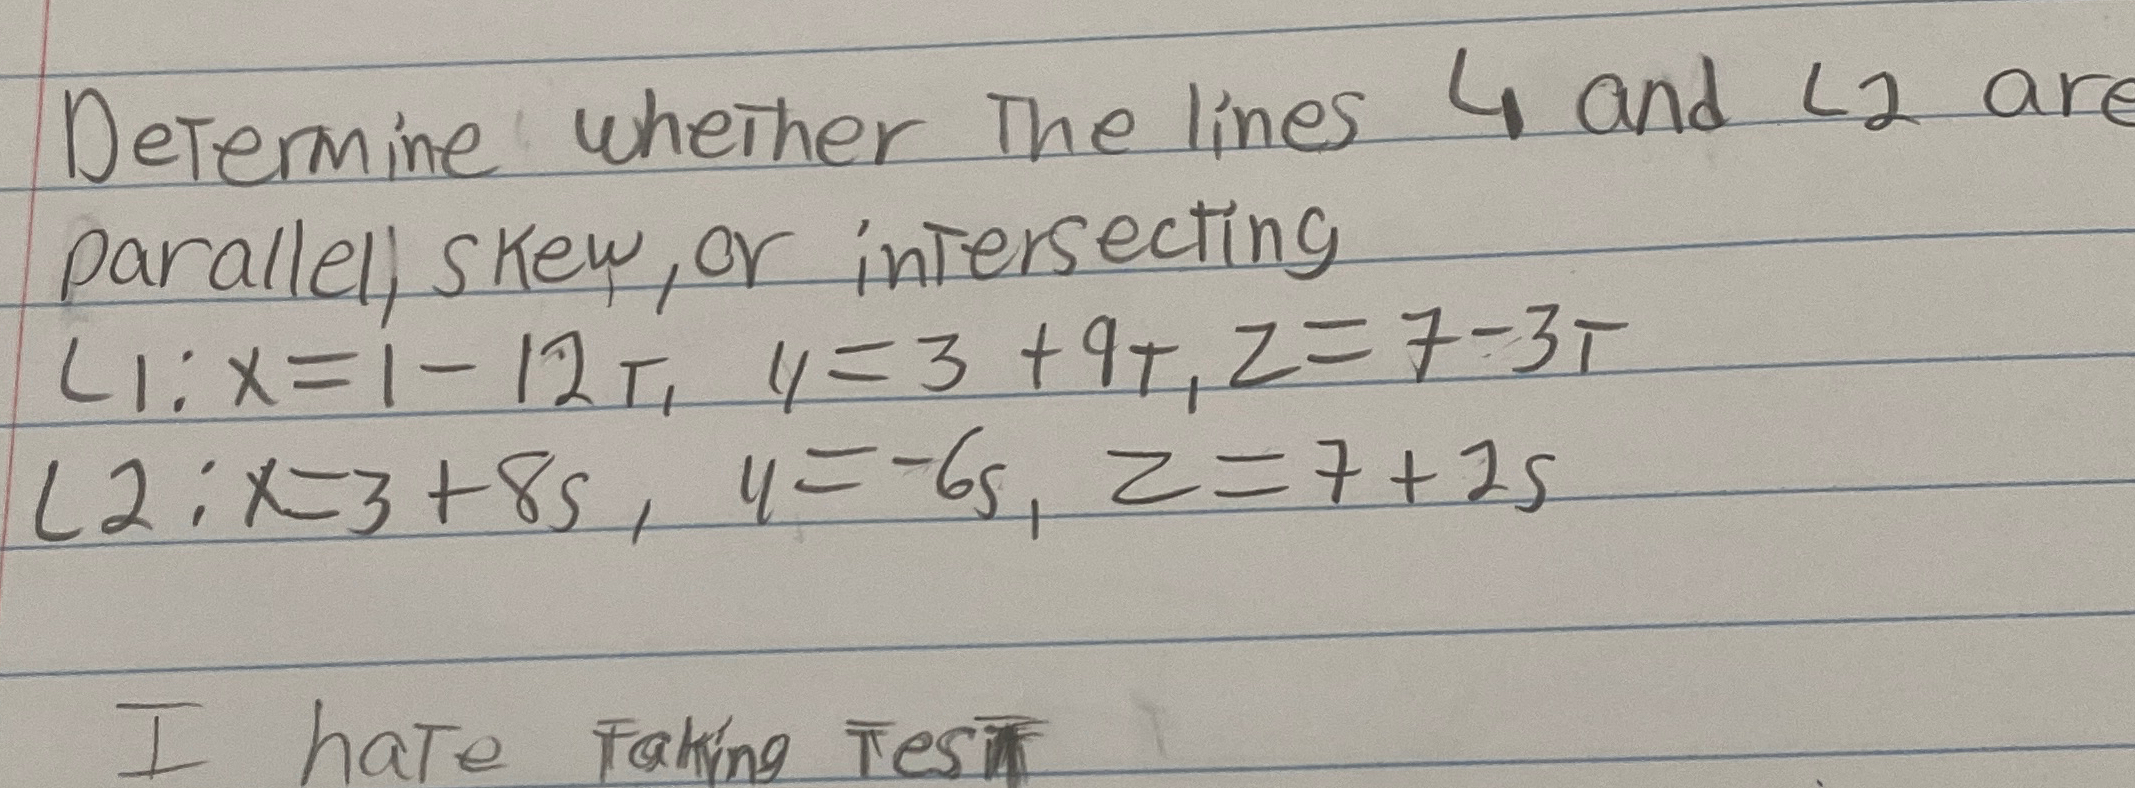 Determine whether the lines L1 and L2 are
parallel, skew, or intersecting
L1: x=1-12T, y=3+9T, z=7-3T
L2: x=3+8s, y=-6s, z=7+2s
I hate taking test